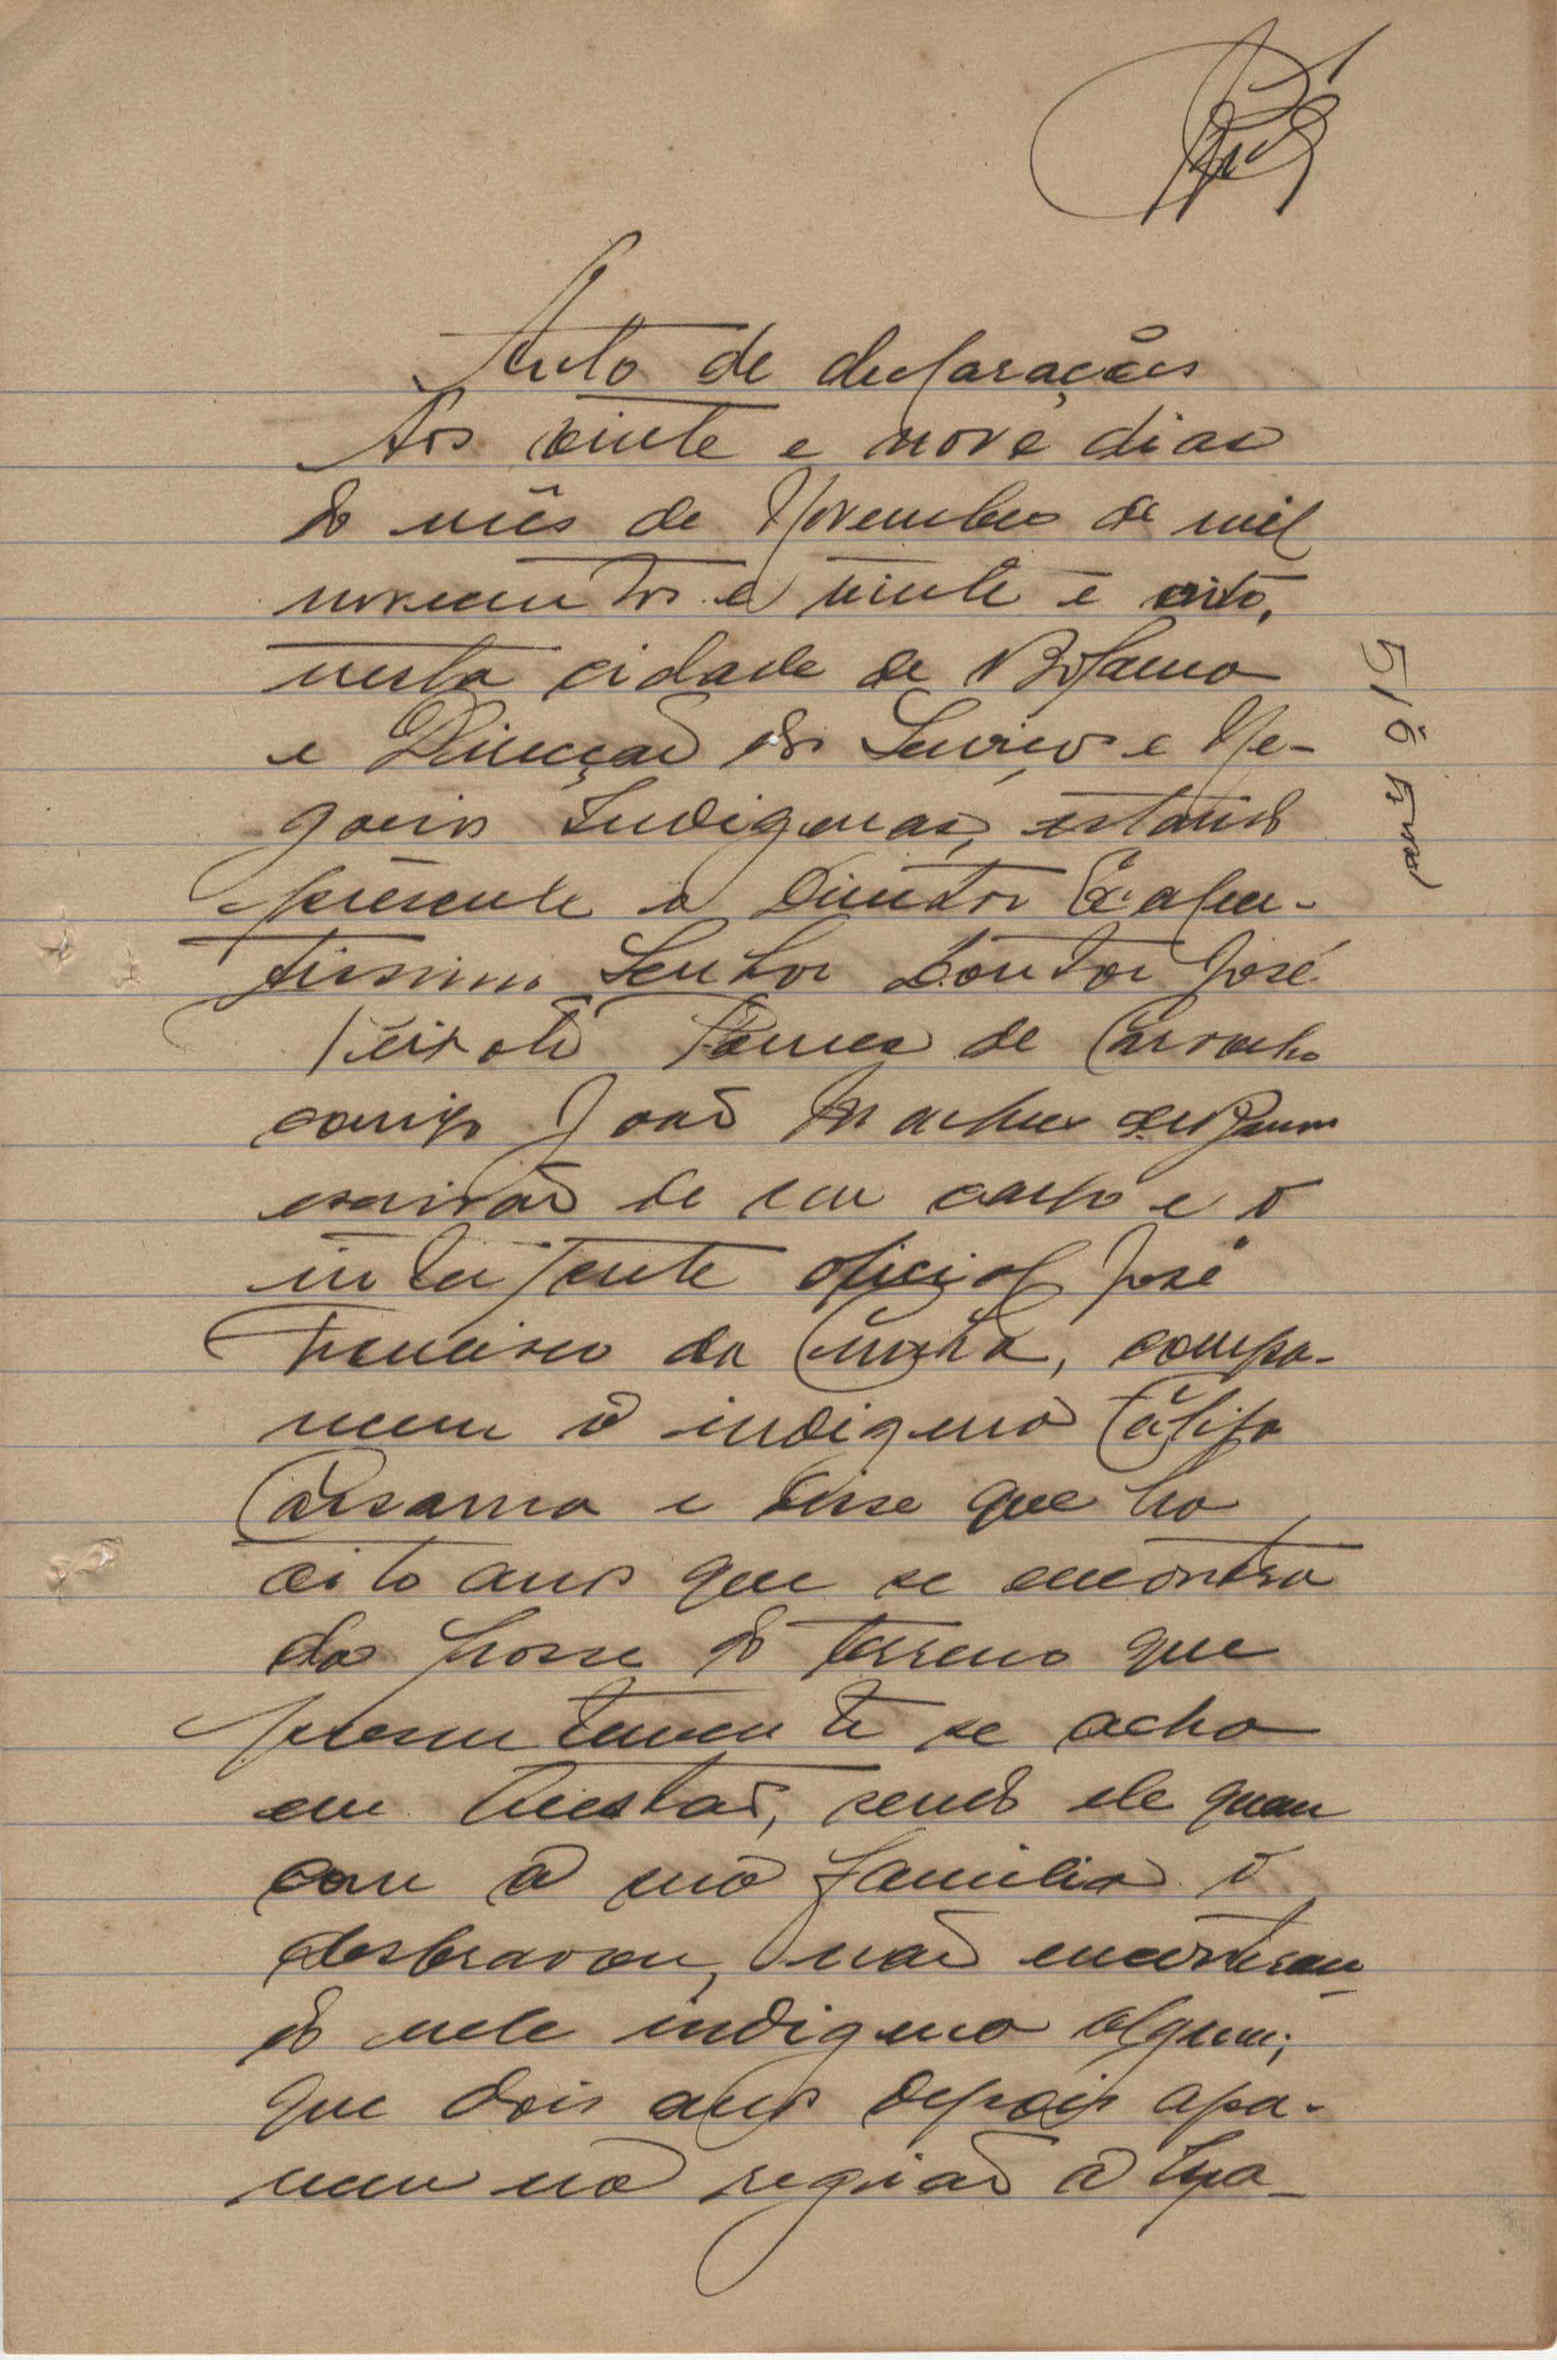 Auto de declarações
Aos vinte e nove dias
do mês de Novembro de mil
novecentos e vinte e oito,
nesta cidade de Bolama
e Direcção dos Serviços e Ne-
gocios Indigenas, estando
presente o Director Excelen-
tissimo Senhor Doutor José
Peixoto Ponces de Carvalho
comigo João
escrivão de seu cargo e o
interprete oficial José
Francisco da Cunha, compa-
receu o indigena Califa
Cassama e disse que ha
oito anos que se encontra
da posse do terreno que
presentemente se acha
em questão, sendo ele quem
com a sua familia o
desbravou, não encontran-
do nele indigena algum;
que dois anos depois apa-
receu na região a